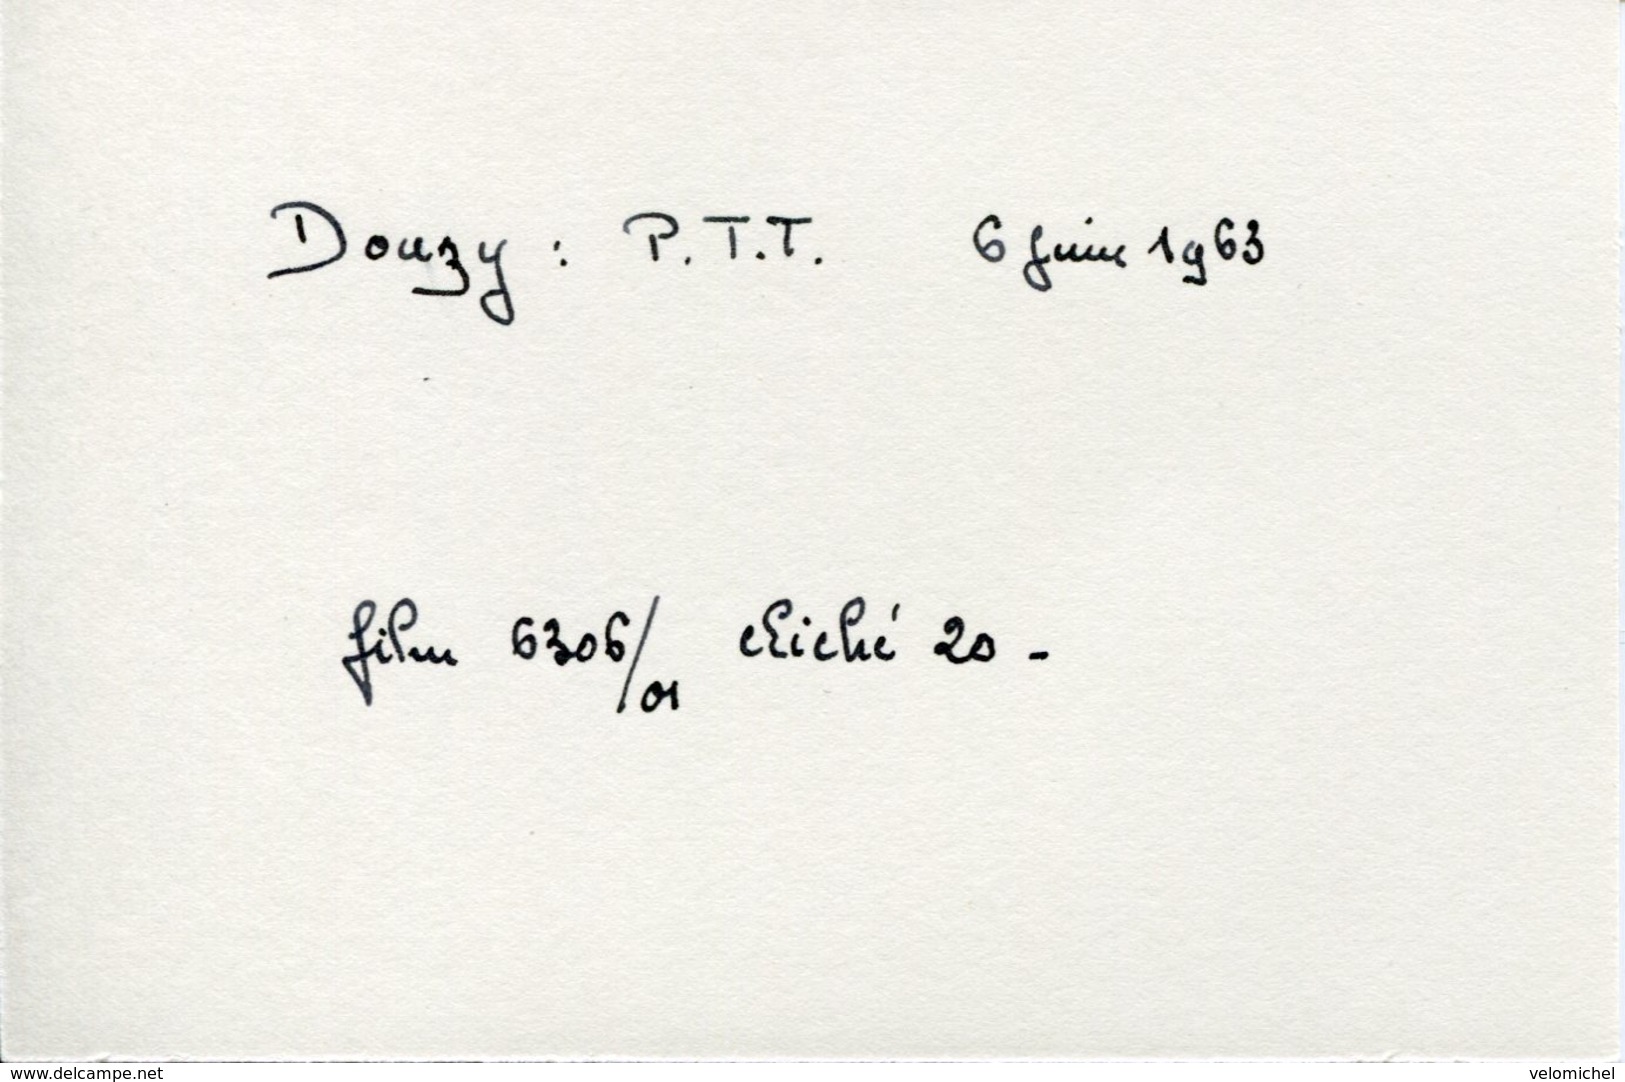 Douzy : P.T.T. 6 juin 1963
film 6306/01 cliché 20 -
www.delcampe.net velomichel